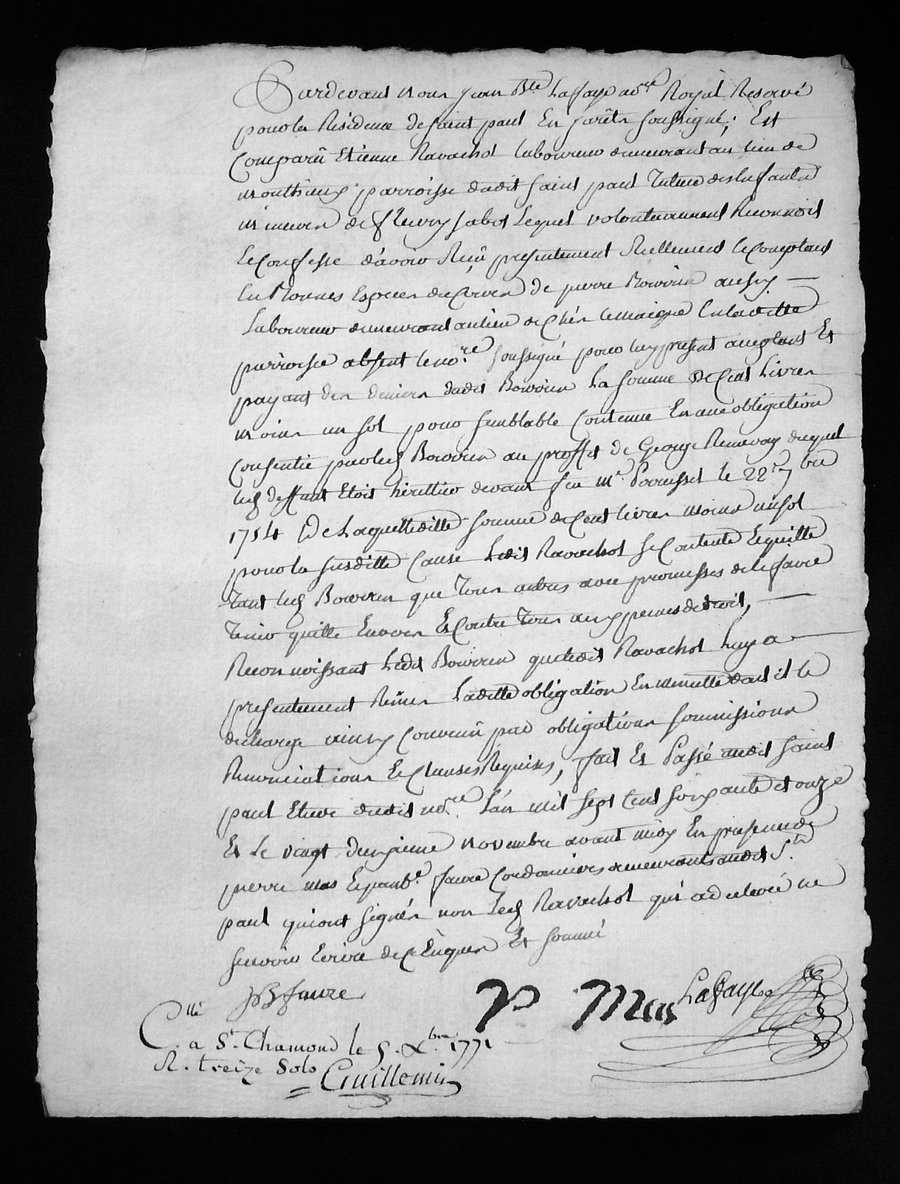 Pardevant nous jean Bte Lafaye nore Royal Reservé
pour la Residence de saint paul En jarêts soussigné; Est
Comparû Etienne Ravachol laboureur demeurant au lieu de
Monthieux parroisse dudit saint paul Tuteur des Enfants
Mineurs de fleury sabot Lequel volontairement Reconnoit
& Confesse d'avoir Reçû presentement Reellement & Comptant
En Bonnes Especes de Cours de pierre Bouvrin aussy
Laboureur demeurant au lieu de en laditte
parroisse absent le nore soussigné pour luy present aceptant Et
payant des deniers dudit Bouvrin La somme de Cent Livres
moins un sol pour semblable Contenue En une obligation
Consentie par led Bouvrin au proffit de George duquel
led deffunt Etoit héritier devant feu me le 22e 7bre
1754 De Laquelleditte somme de Cent livres moins un sol
pour la susditte Cause Ledit Ravachol se Contente & quitte
tant led Bouvrin que Tous autres avec promesses de le faire
Tenir quitte Envers & Contre Tous aux peines de droit,
Reconnoissant Ledit Bouvrin que ledit Ravachol Luy a
presentement Remis Laditte obligation En minutte dont il le
decharge ainsy Convenû par obligations soumissions
Renonciations & Clauses Requises, fait Et Passé audit saint
paul Etude dudit nore L'an mil sept cent soixante et onze
Et Le vingt deuxieme novembre avant midy En presence de
pierre mas & jean bte faure Cordonniers demeurants audit St
paul qui ont signés non Led Ravachol qui a declaré ne
scavoir Ecrire de Enquis Et sommé
JB faure P Mas Lafaye
Cllé a St. Chamond le 5. Xbre 1771
R. treize sols
Guillemin